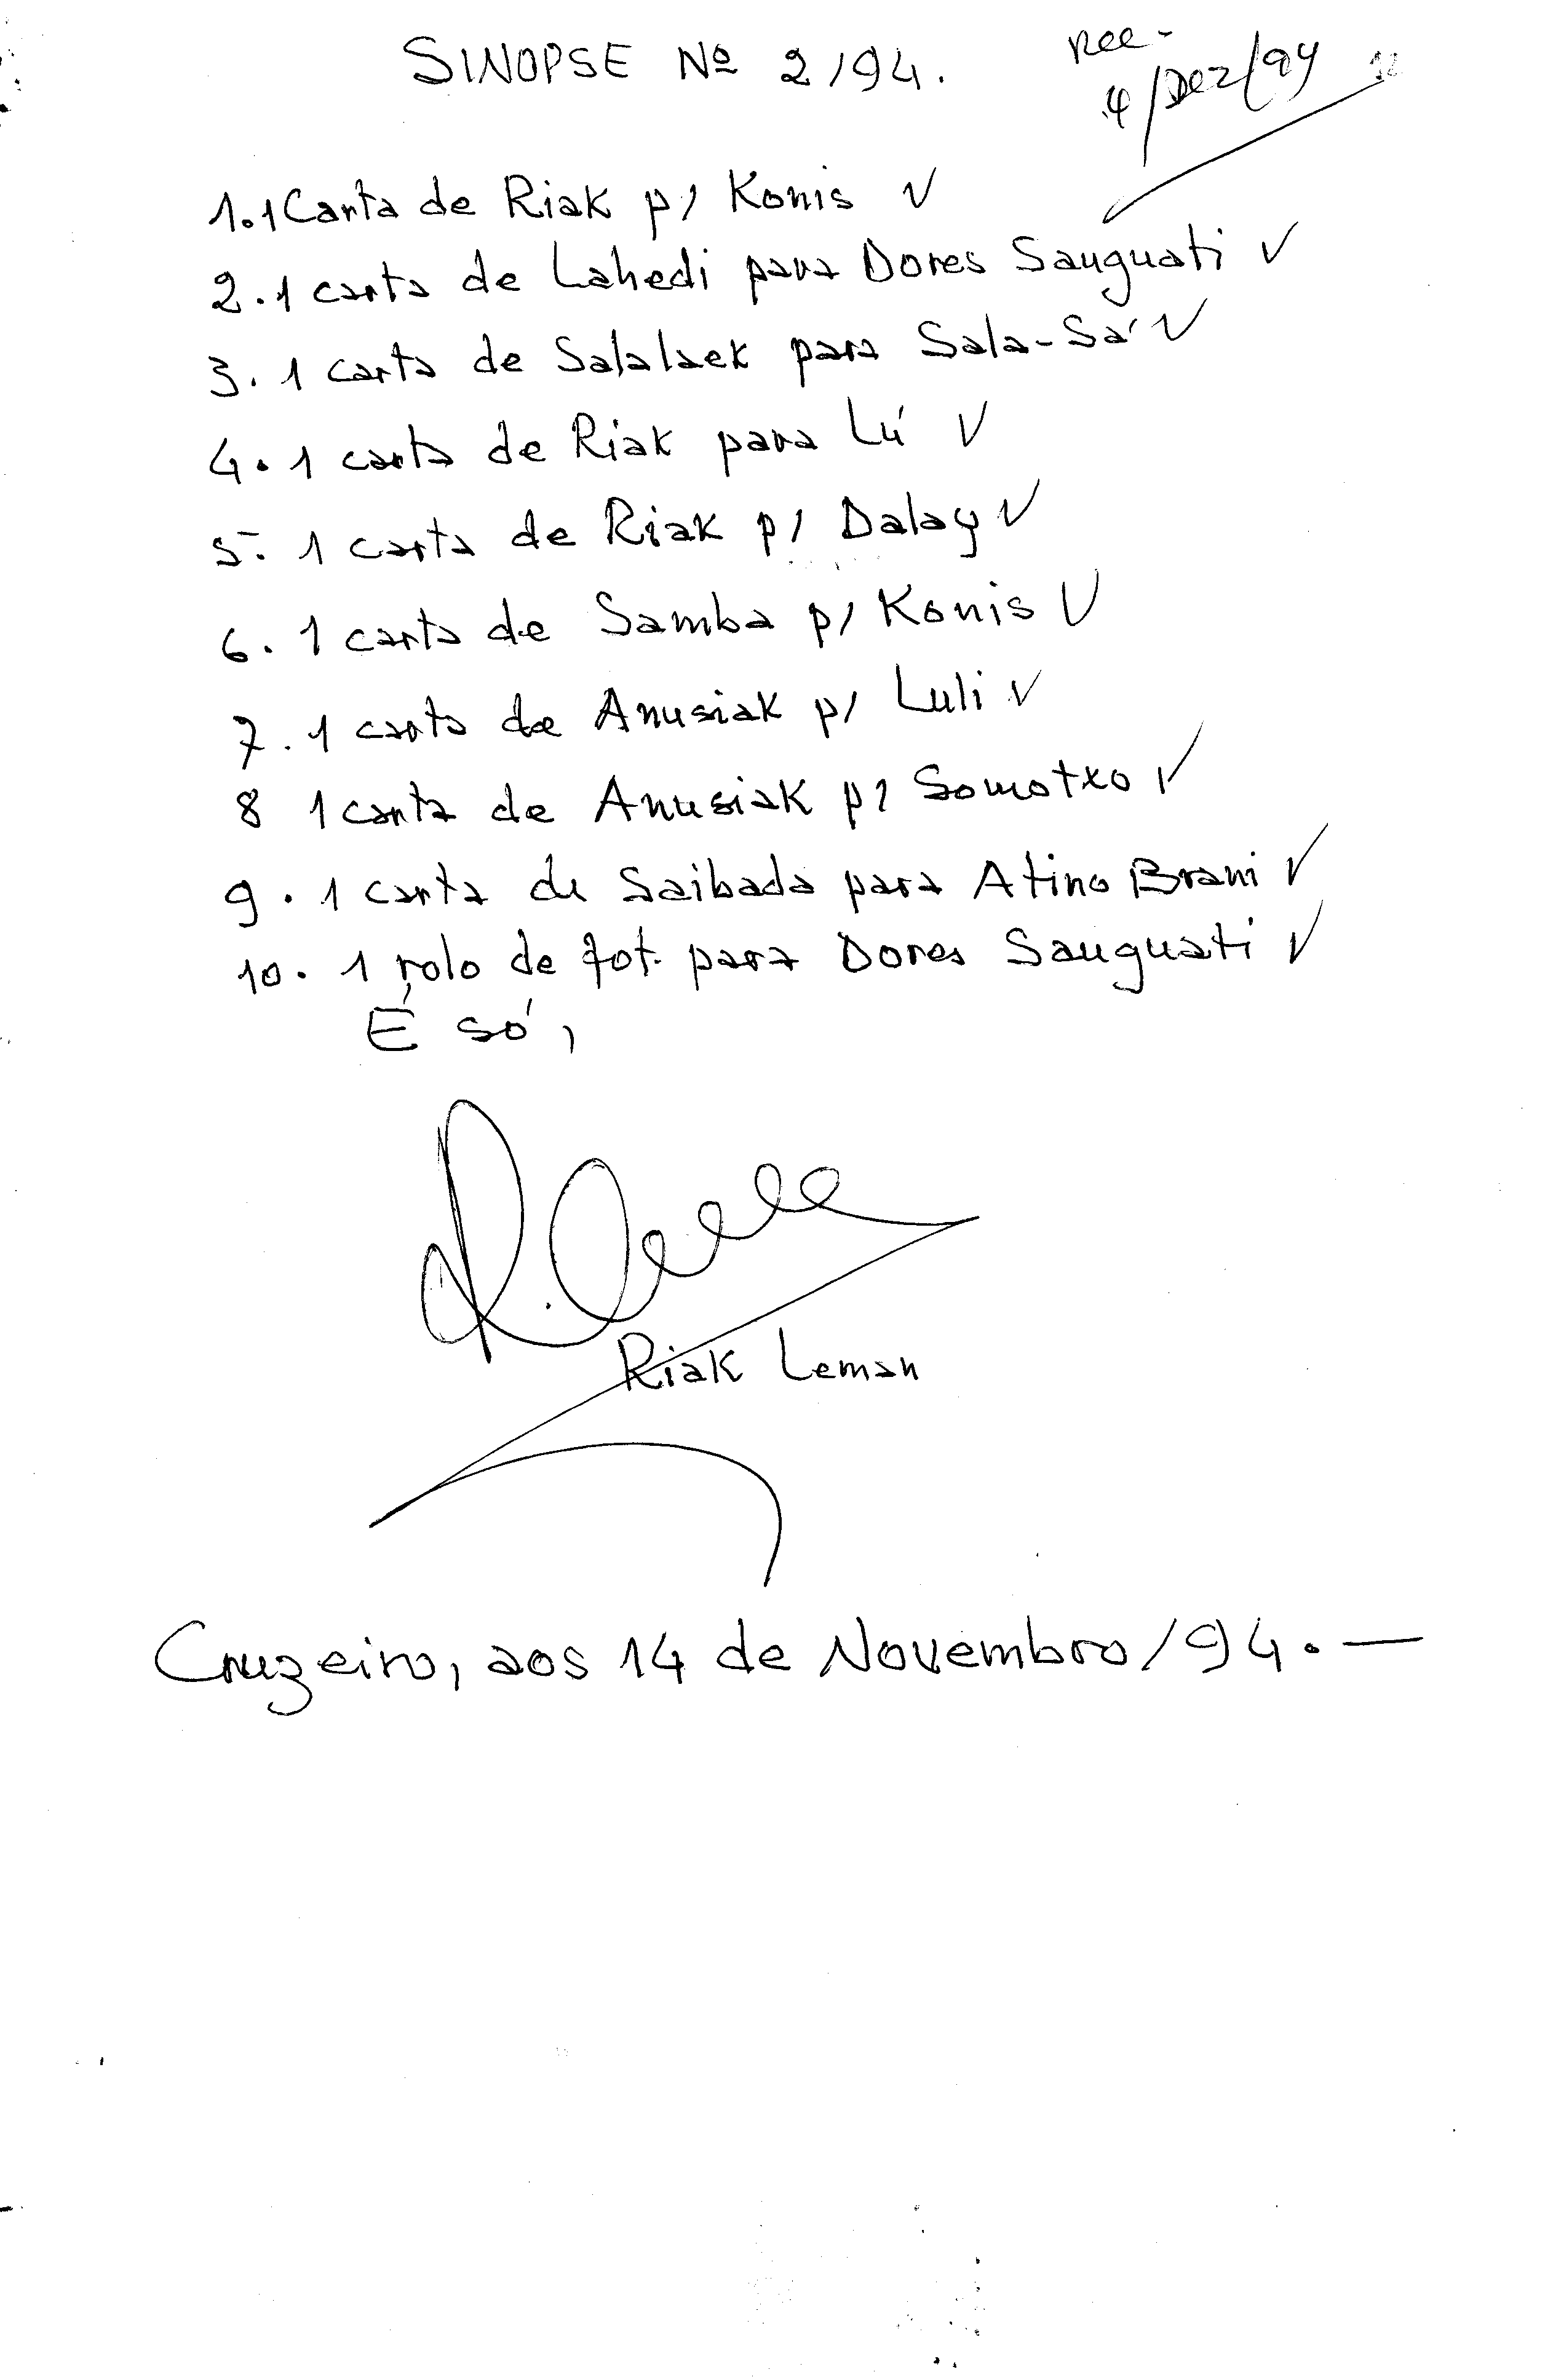 SINOPSE Nº 2/94.
Rec-
4/Dez/94
1. 1 Carta de Riak p/ Konis ✓
2. 1 carta de Lahedi para Dores Sanguati ✓
3. 1 carta de Salalaek para Sala-Sá ✓
4. 1 carta de Riak para Lú ✓
5. 1 carta de Riak p/ Dalay ✓
6. 1 carta de Samba p/ Konis ✓
7. 1 carta de Anusiak p/ Luli ✓
8 1 carta de Anusiak p/ Somotxo ✓
9. 1 carta de Saibada para Atino Brani ✓
10. 1 rolo de fot. para Dores Sanguati ✓
É só,
Riak Leman
Cruzeiro, aos 14 de Novembro/94. —